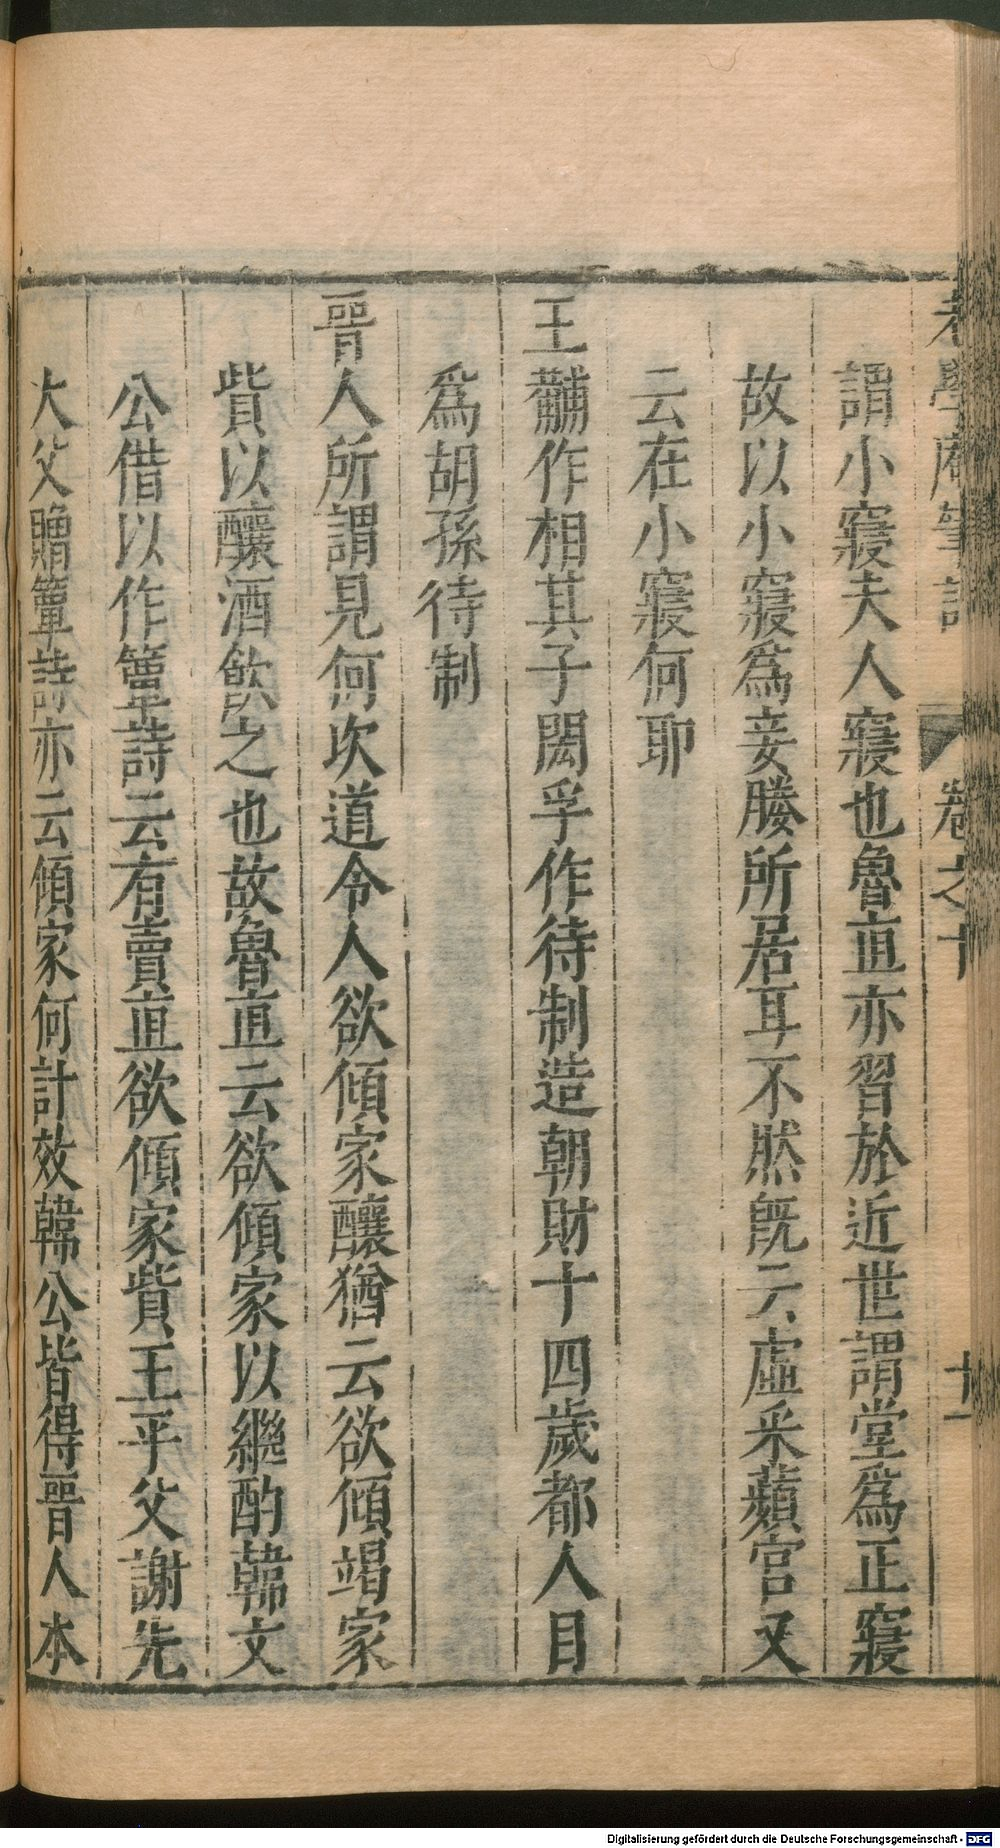 老學庵筆記 卷之十 十二
謂小寢夫人寢也魯直亦習於近世謂堂爲正寢
故以小寢爲妾媵所居耳不然旣云虛采蘋宮又
云在小寢何耶
王黼作相其子閎孚作待制造朝財十四歲都人目
爲胡孫待制
晉人所謂見何次道令人欲傾家釀猶云欲傾竭家
貲以釀酒飲之也故魯直云欲傾家以繼酌韓文
公借以作簟詩云有賣直欲傾家貲王平父謝先
大父贈簟詩亦云傾家何計效韓公皆得晉人本
Digitalisierung gefördert durch die Deutsche Forschungsgemeinschaft - DFG